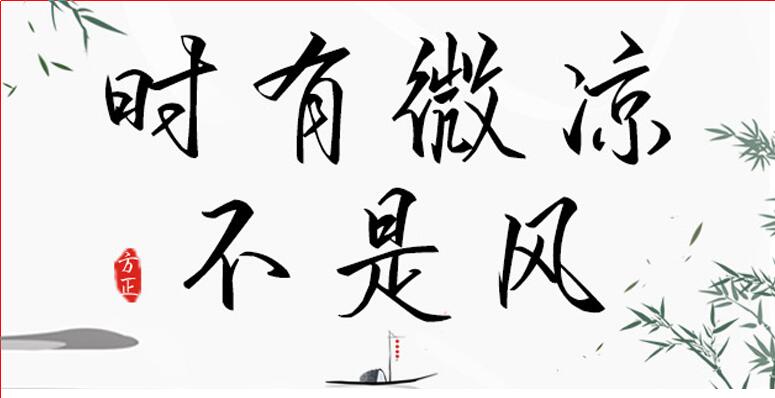 时有微凉
不是风
方正